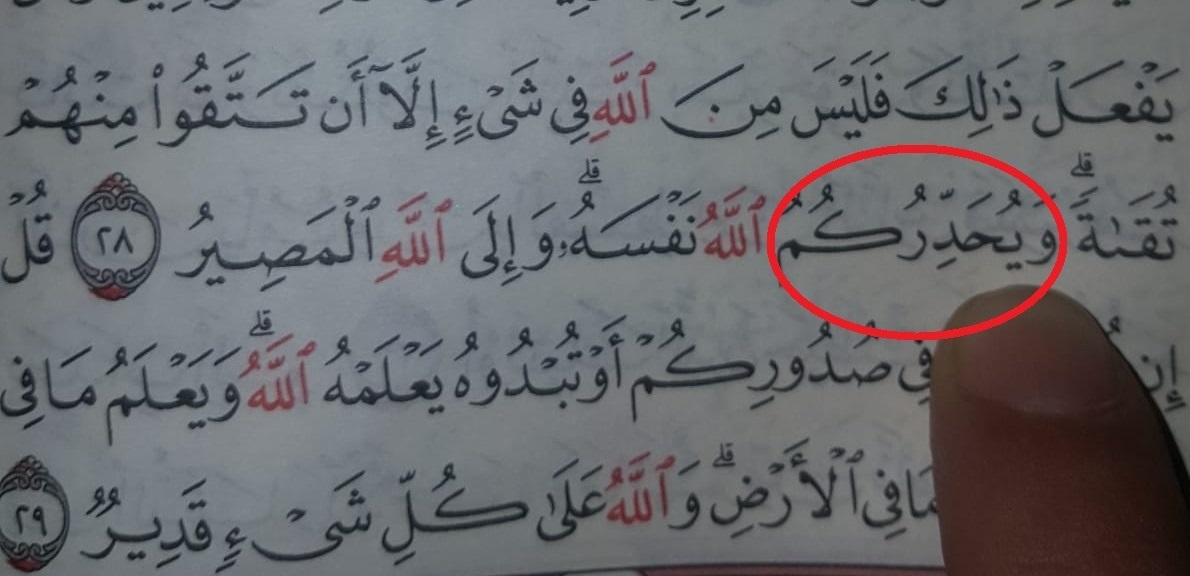 يَفْعَلْ ذَٰلِكَ فَلَيْسَ مِنَ ٱللَّهِ فِي شَىْءٍ إِلَّآ أَن تَتَّقُوا۟ مِنْهُمْ
تُقَىٰةً ۗ وَيُحَدِّرُكُمُ ٱللَّهُ نَفْسَهُۥ ۗ وَإِلَى ٱللَّهِ ٱلْمَصِيرُ ٢٨ قُلْ
إِن فِي صُدُورِكُمْ أَوْ تُبْدُوهُ يَعْلَمْهُ ٱللَّهُ ۗ وَيَعْلَمُ مَا فِي
مَا فِي ٱلْأَرْضِ ۗ وَٱللَّهُ عَلَىٰ كُلِّ شَىْءٍ قَدِيرٌ ٢٩